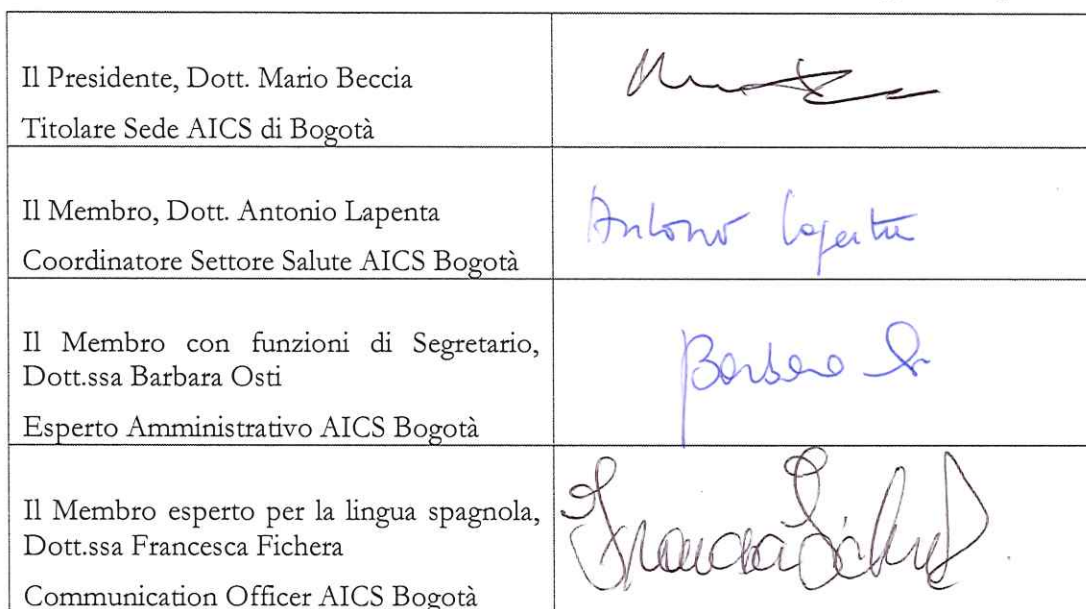 Il Presidente, Dott. Mario Beccia
Titolare Sede AICS di Bogotà
Il Membro, Dott. Antonio Lapenta
Coordinatore Settore Salute AICS Bogotà
Antonio Lapenta
Il Membro con funzioni di Segretario,
Dott.ssa Barbara Osti
Esperto Amministrativo AICS Bogotà
Barbara
Il Membro esperto per la lingua spagnola,
Dott.ssa Francesca Fichera
Communication Officer AICS Bogotà